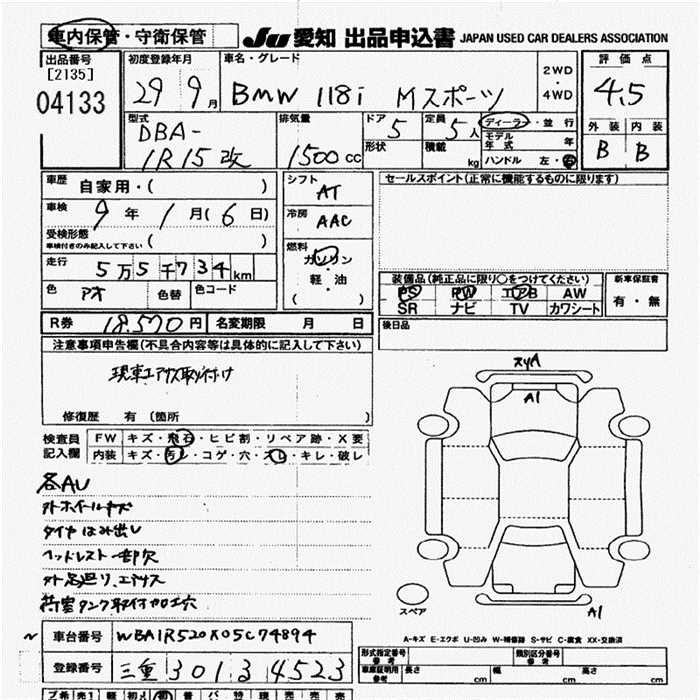 車内保管・守衛保管 JU 愛知 出品申込書 JAPAN USED CAR DEALERS ASSOCIATION
出品番号 [2135] 04133
初度登録年月 29年9月
車名・グレード BMW 118i Mスポーツ 2WD・4WD
評価点 4.5
型式 DBA-1R15改
排気量 1500cc
ドア 5 形状
定員 5人 積載 kg
ディーラー・並行
モデル年式 年
ハンドル 左・右
外装 内装
B B
車歴 自家用・( )
車検 9年1月(6日)
受検形態 車検付きのみ記入して下さい ( )
シフト AT
冷房 AAC
燃料 ガソリン・軽・油 ( )
セールスポイント(正常に機能するものに限ります)
走行 5万5千734km
色 アオ 色替 色コード
装備品(純正品に限り○をつけてください)
PS PW エアB AW
SR ナビ TV カワシート
新車保証書 有・無
R券 18,570円 名変期限 月 日
後日品
注意事項申告欄(不具合内容等は具体的に記入して下さい)
現車エアサス取り付け
修復歴 有 (箇所 )
検査員記入欄 FW キズ・飛石・ヒビ割・リペア跡・X要
内装 キズ・汚レ・コゲ・穴・スレ・キレ・破レ
各AU
外ホイールキズ
タイヤはみ出し
ヘッドレスト一部欠
外足廻り、エアサス
荷室タンク取付加工穴
スリA
A1
スペア
A1
A-キズ E-エクボ U-凹み W-補修跡 S-サビ C-腐食 XX-交換済
車台番号 WBA1R520X05C74894
登録番号 三重 301 3 4523
形式指定番号 参考 類別区分番号 参考
車庫証明用 参考 長さ cm 幅 cm 高さ cm